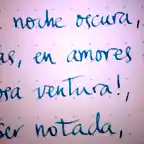 noche oscura,
en amores
ventura!,
notada,